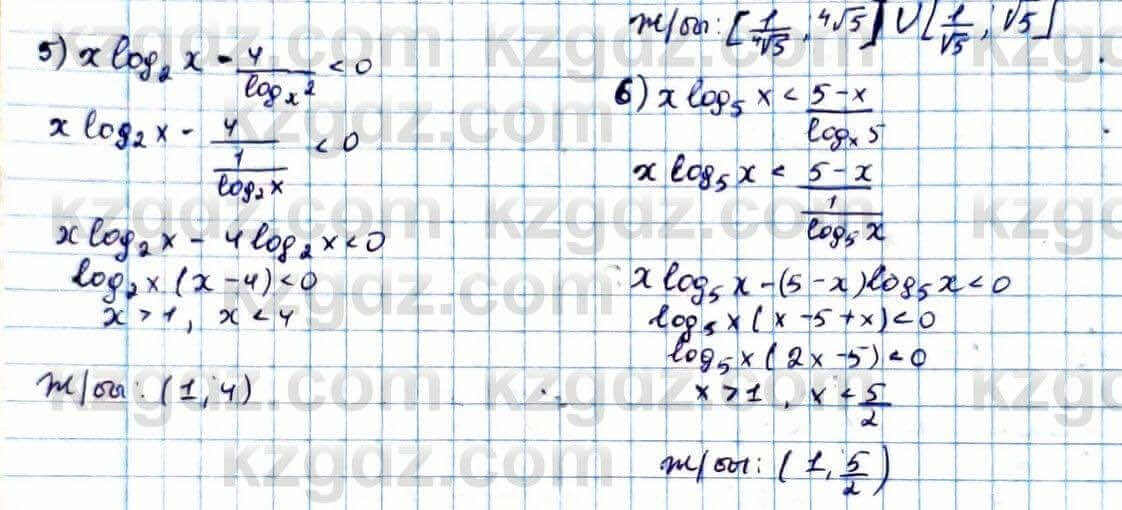 5) x log₂ x - 4/(logₓ 2) < 0
x log₂ x - 4/(1/(log₂ x)) < 0
x log₂ x - 4 log₂ x < 0
log₂ x (x - 4) < 0
x > 1, x < 4
Ж/бы: (1, 4)
Ж/бы: [1/⁴√5, ⁴√5] U [1/√5, √5]
6) x log₅ x < (5 - x)/(logₓ 5)
x log₅ x < (5 - x)/(1/(log₅ x))
x log₅ x - (5 - x) log₅ x < 0
log₅ x (x - 5 + x) < 0
log₅ x (2x - 5) < 0
x > 1, x < 5/2
Ж/бы: (1, 5/2)
kzgdz.com